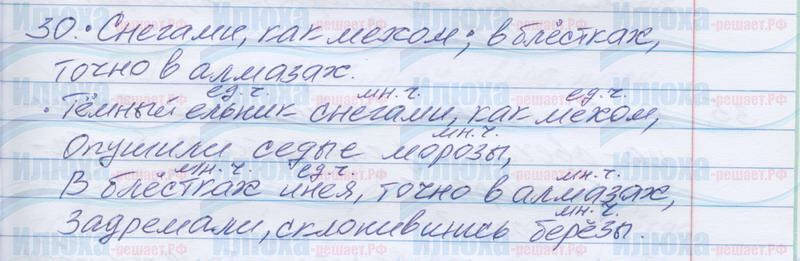 30. • Снегами, как мехом; в блёстках,
точно в алмазах.
ед. ч. мн. ч. ед. ч.
• Тёмный ельник снегами, как мехом,
мн. ч.
Опушили седые морозы,
мн. ч. ед. ч. мн. ч.
В блёстках инея, точно в алмазах,
мн. ч.
Задремали, склонившись берёзы.